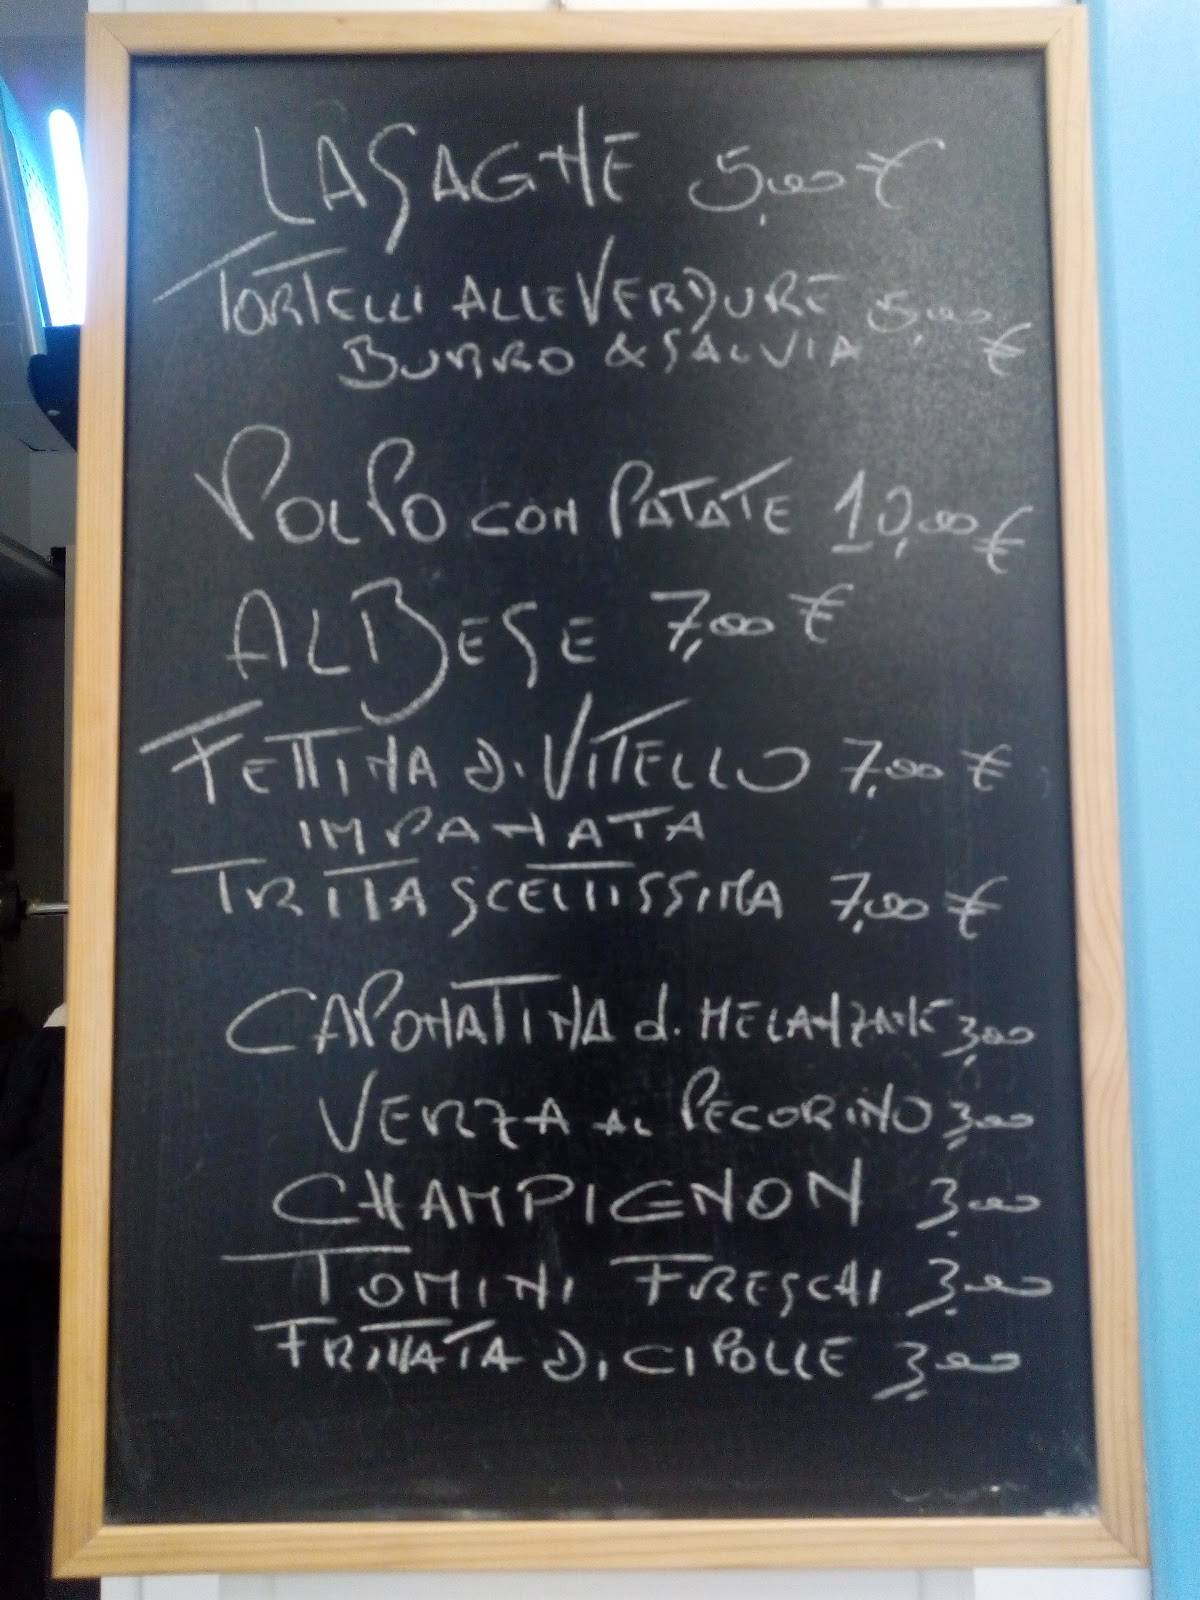 LASAGNE 5,00 €
TORTELLI ALLE VERDURE 5,00
BURRO & SALVIA €
POLPO CON PATATE 10,00 €
ALBESE 7,00 €
FETTINA di VITELLO 7,00 €
IMPANATA
TRITTA SCELTISSIMA 7,00 €
CAPONATINA di MELANZANE 3,00
VERZA AL PECORINO 3,00
CHAMPIGNON 3,00
TOMINI FRESCHI 3,00
FRITTATA Di CIPOLLE 3,00